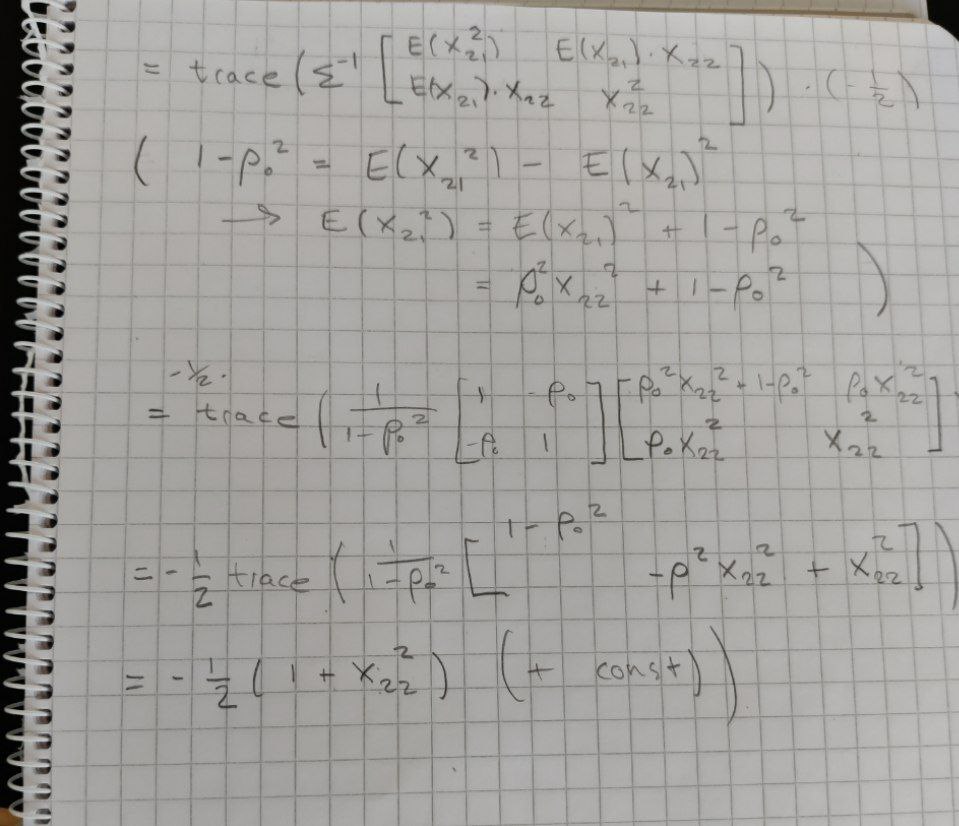 = trace ( Σ⁻¹ [ E(x₂₁²) E(x₂₁)·x₂₂
E(x₂₁)·x₂₂ x₂₂² ] ) · (-½)
( 1-ρ₀² = E(x₂₁²) - E(x₂₁)²
→ E(x₂₁²) = E(x₂₁)² + 1-ρ₀²
= ρ₀² x₂₂² + 1-ρ₀² )
-½·
= trace ( 1/(1-ρ₀²) [ 1 -ρ₀ ] [ ρ₀² x₂₂² + 1-ρ₀² ρ₀ x₂₂²
-ρ₀ 1 ρ₀ x₂₂² x₂₂² ]
1-ρ₀²
= -½ trace ( 1/(1-ρ₀²) [ -ρ² x₂₂² + x₂₂² ] )
= -½ ( 1 + x₂₂² ) (+ const) )